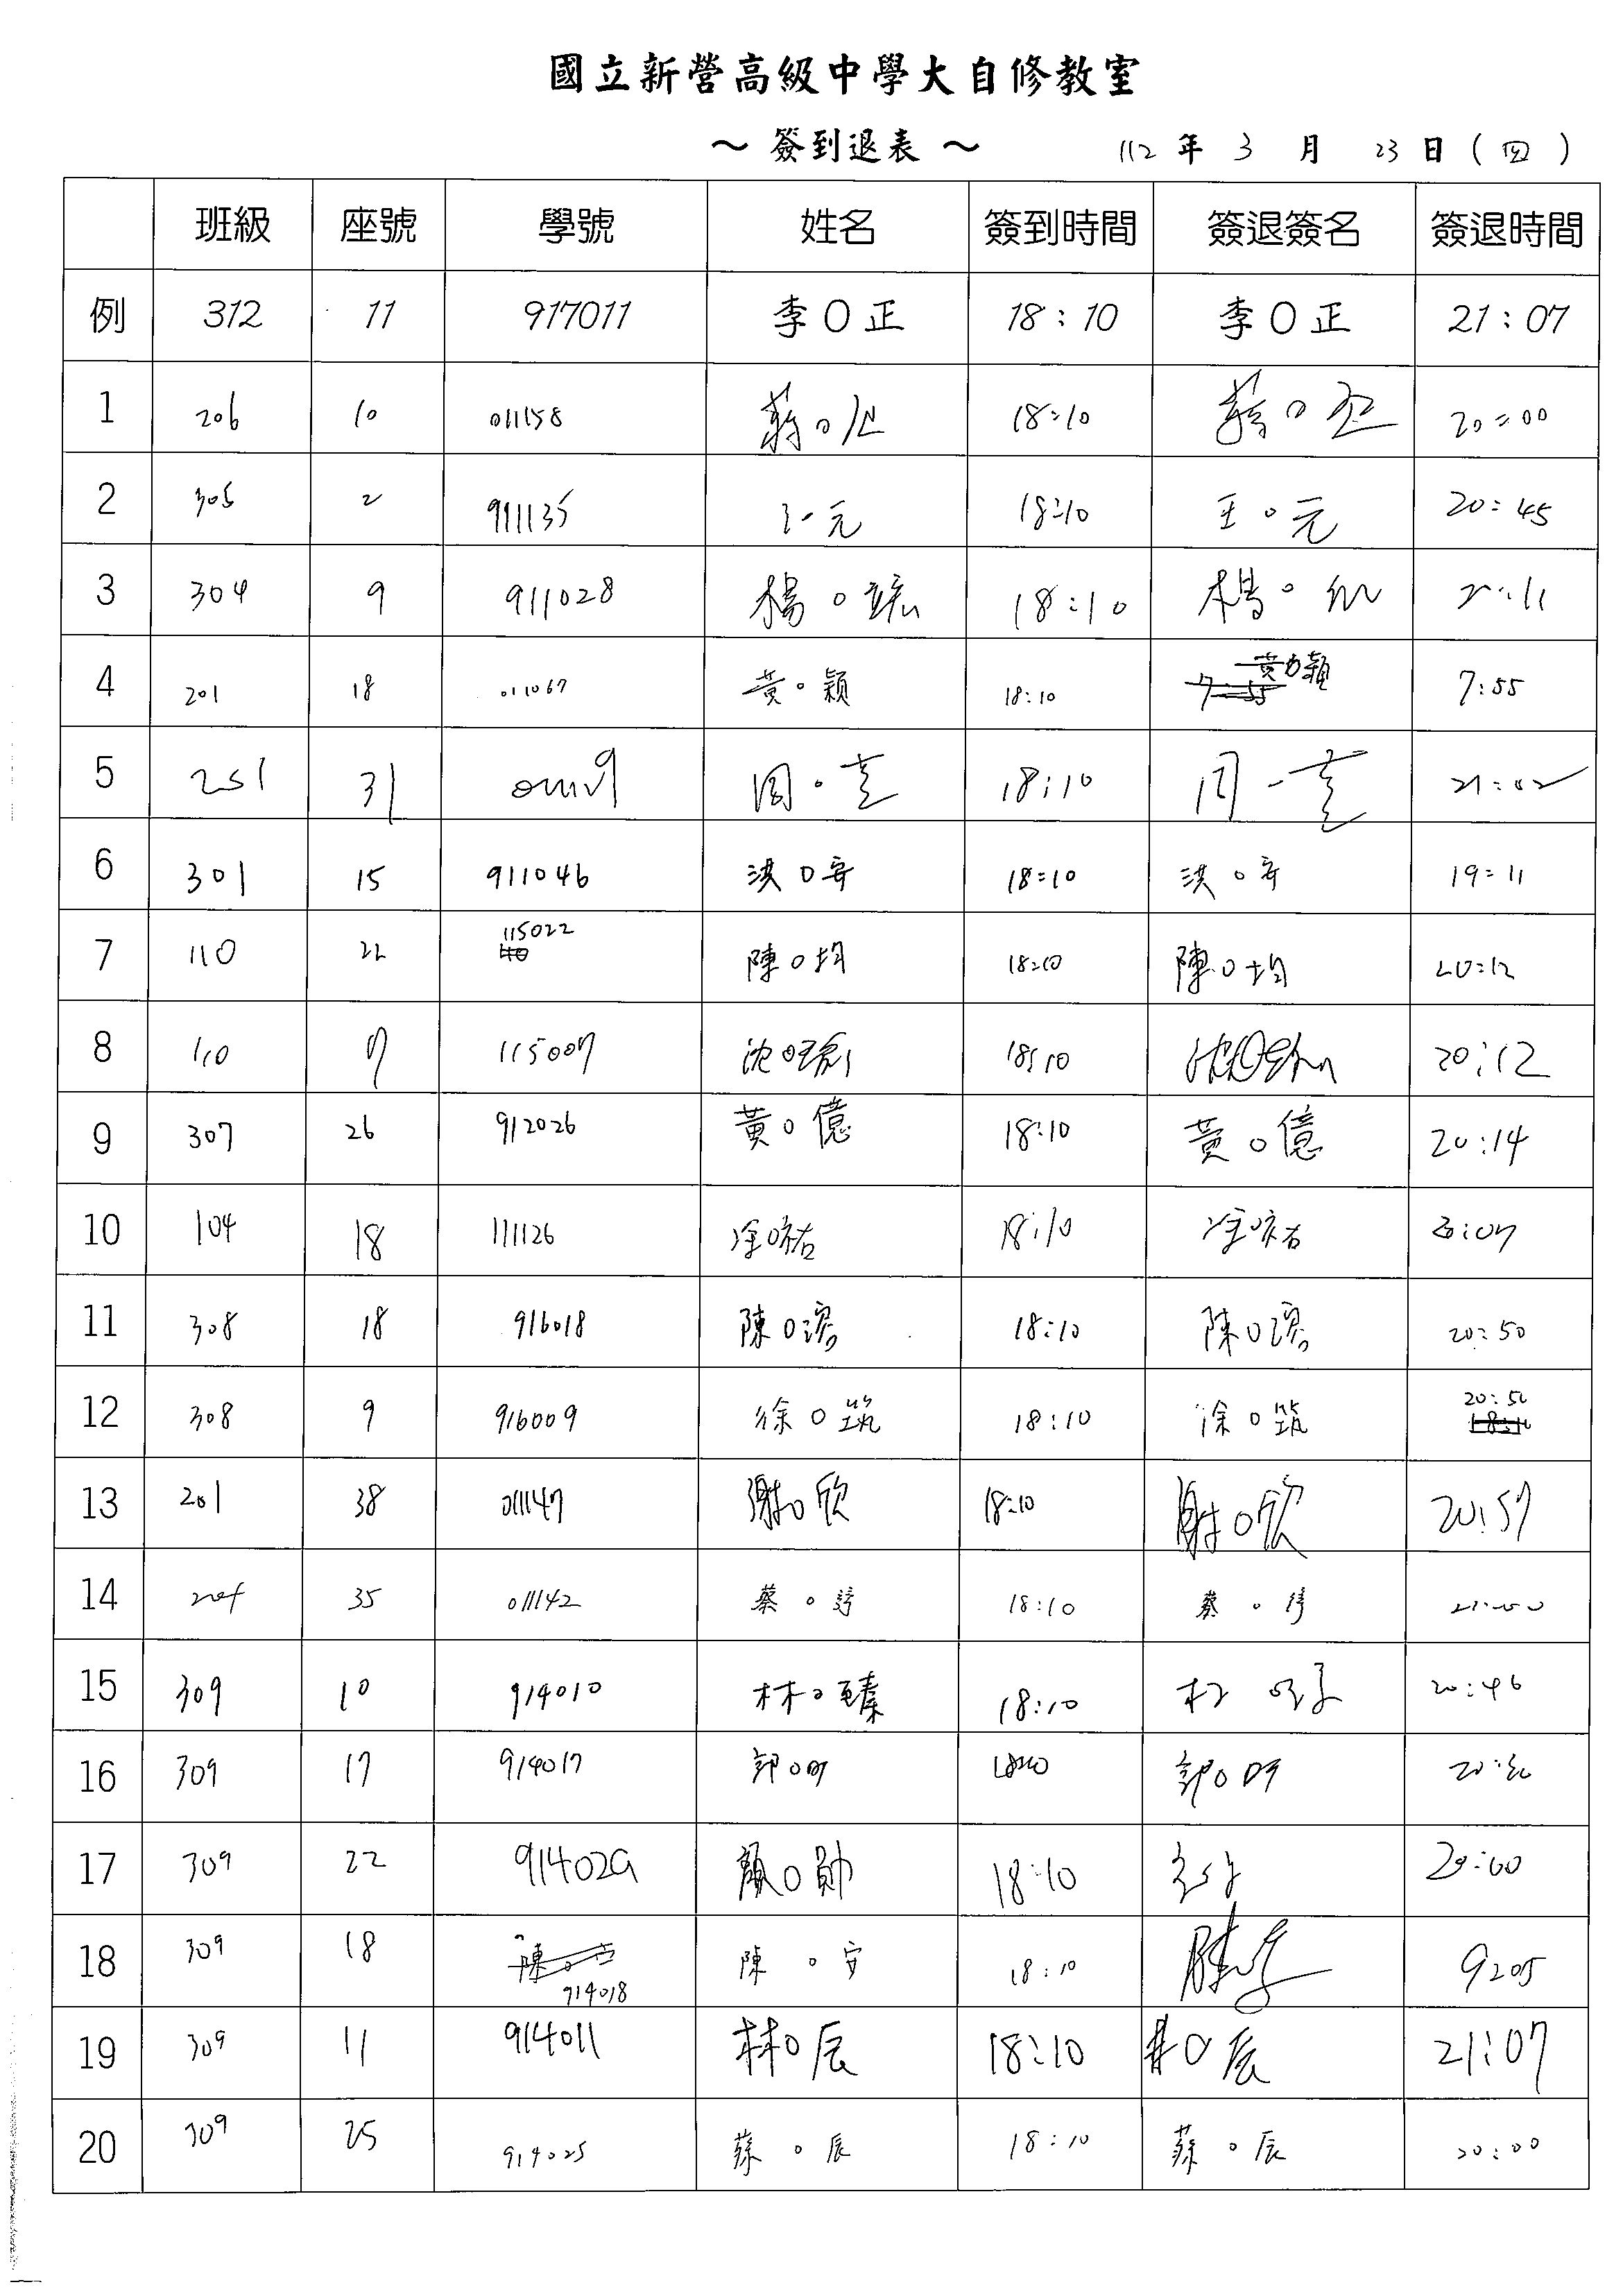 國立新營高級中學大自修教室
～ 簽到退表 ～ 112 年 3 月 23 日 ( 四 )
班級 座號 學號 姓名 簽到時間 簽退簽名 簽退時間
例 312 11 917011 李O正 18:10 李O正 21:07
1 206 10 011158 蔣O 18:10 蔣O 20:00
2 305 2 911135 元 18:10 王O元 20:45
3 304 9 911028 楊O 18:10 楊O
4 201 18 011067 黃O穎 18:10 黃O穎 7:55
5 201 31 周O 18:10 周 21:02
6 301 15 911046 洪O安 18:10 洪O安 19:11
7 110 22 115022 陳O均 18:10 陳O均 20:12
8 110 9 115009 沈O 18:10 沈O 20:12
9 307 26 912026 黃O億 18:10 黃O億 20:14
10 104 18 111126 涂O祐 18:10 涂O祐
11 308 18 916018 陳O 18:10 陳O 20:50
12 308 9 916009 徐O筑 18:10 徐O筑 20:50
13 201 38 011147 謝O欣 18:10 謝O欣 20:57
14 35 011142 蔡O 18:10 蔡O
15 309 10 914010 林O臻 18:10 20:46
16 309 17 914017 郭O 18:10 郭O
17 309 22 顏O勛 18:10
18 309 18 914018 陳O安 18:10 陳 9:05
19 309 11 914011 林O辰 18:10 林O辰 21:07
20 309 25 914025 蘇O辰 18:10 蘇O辰 20:00